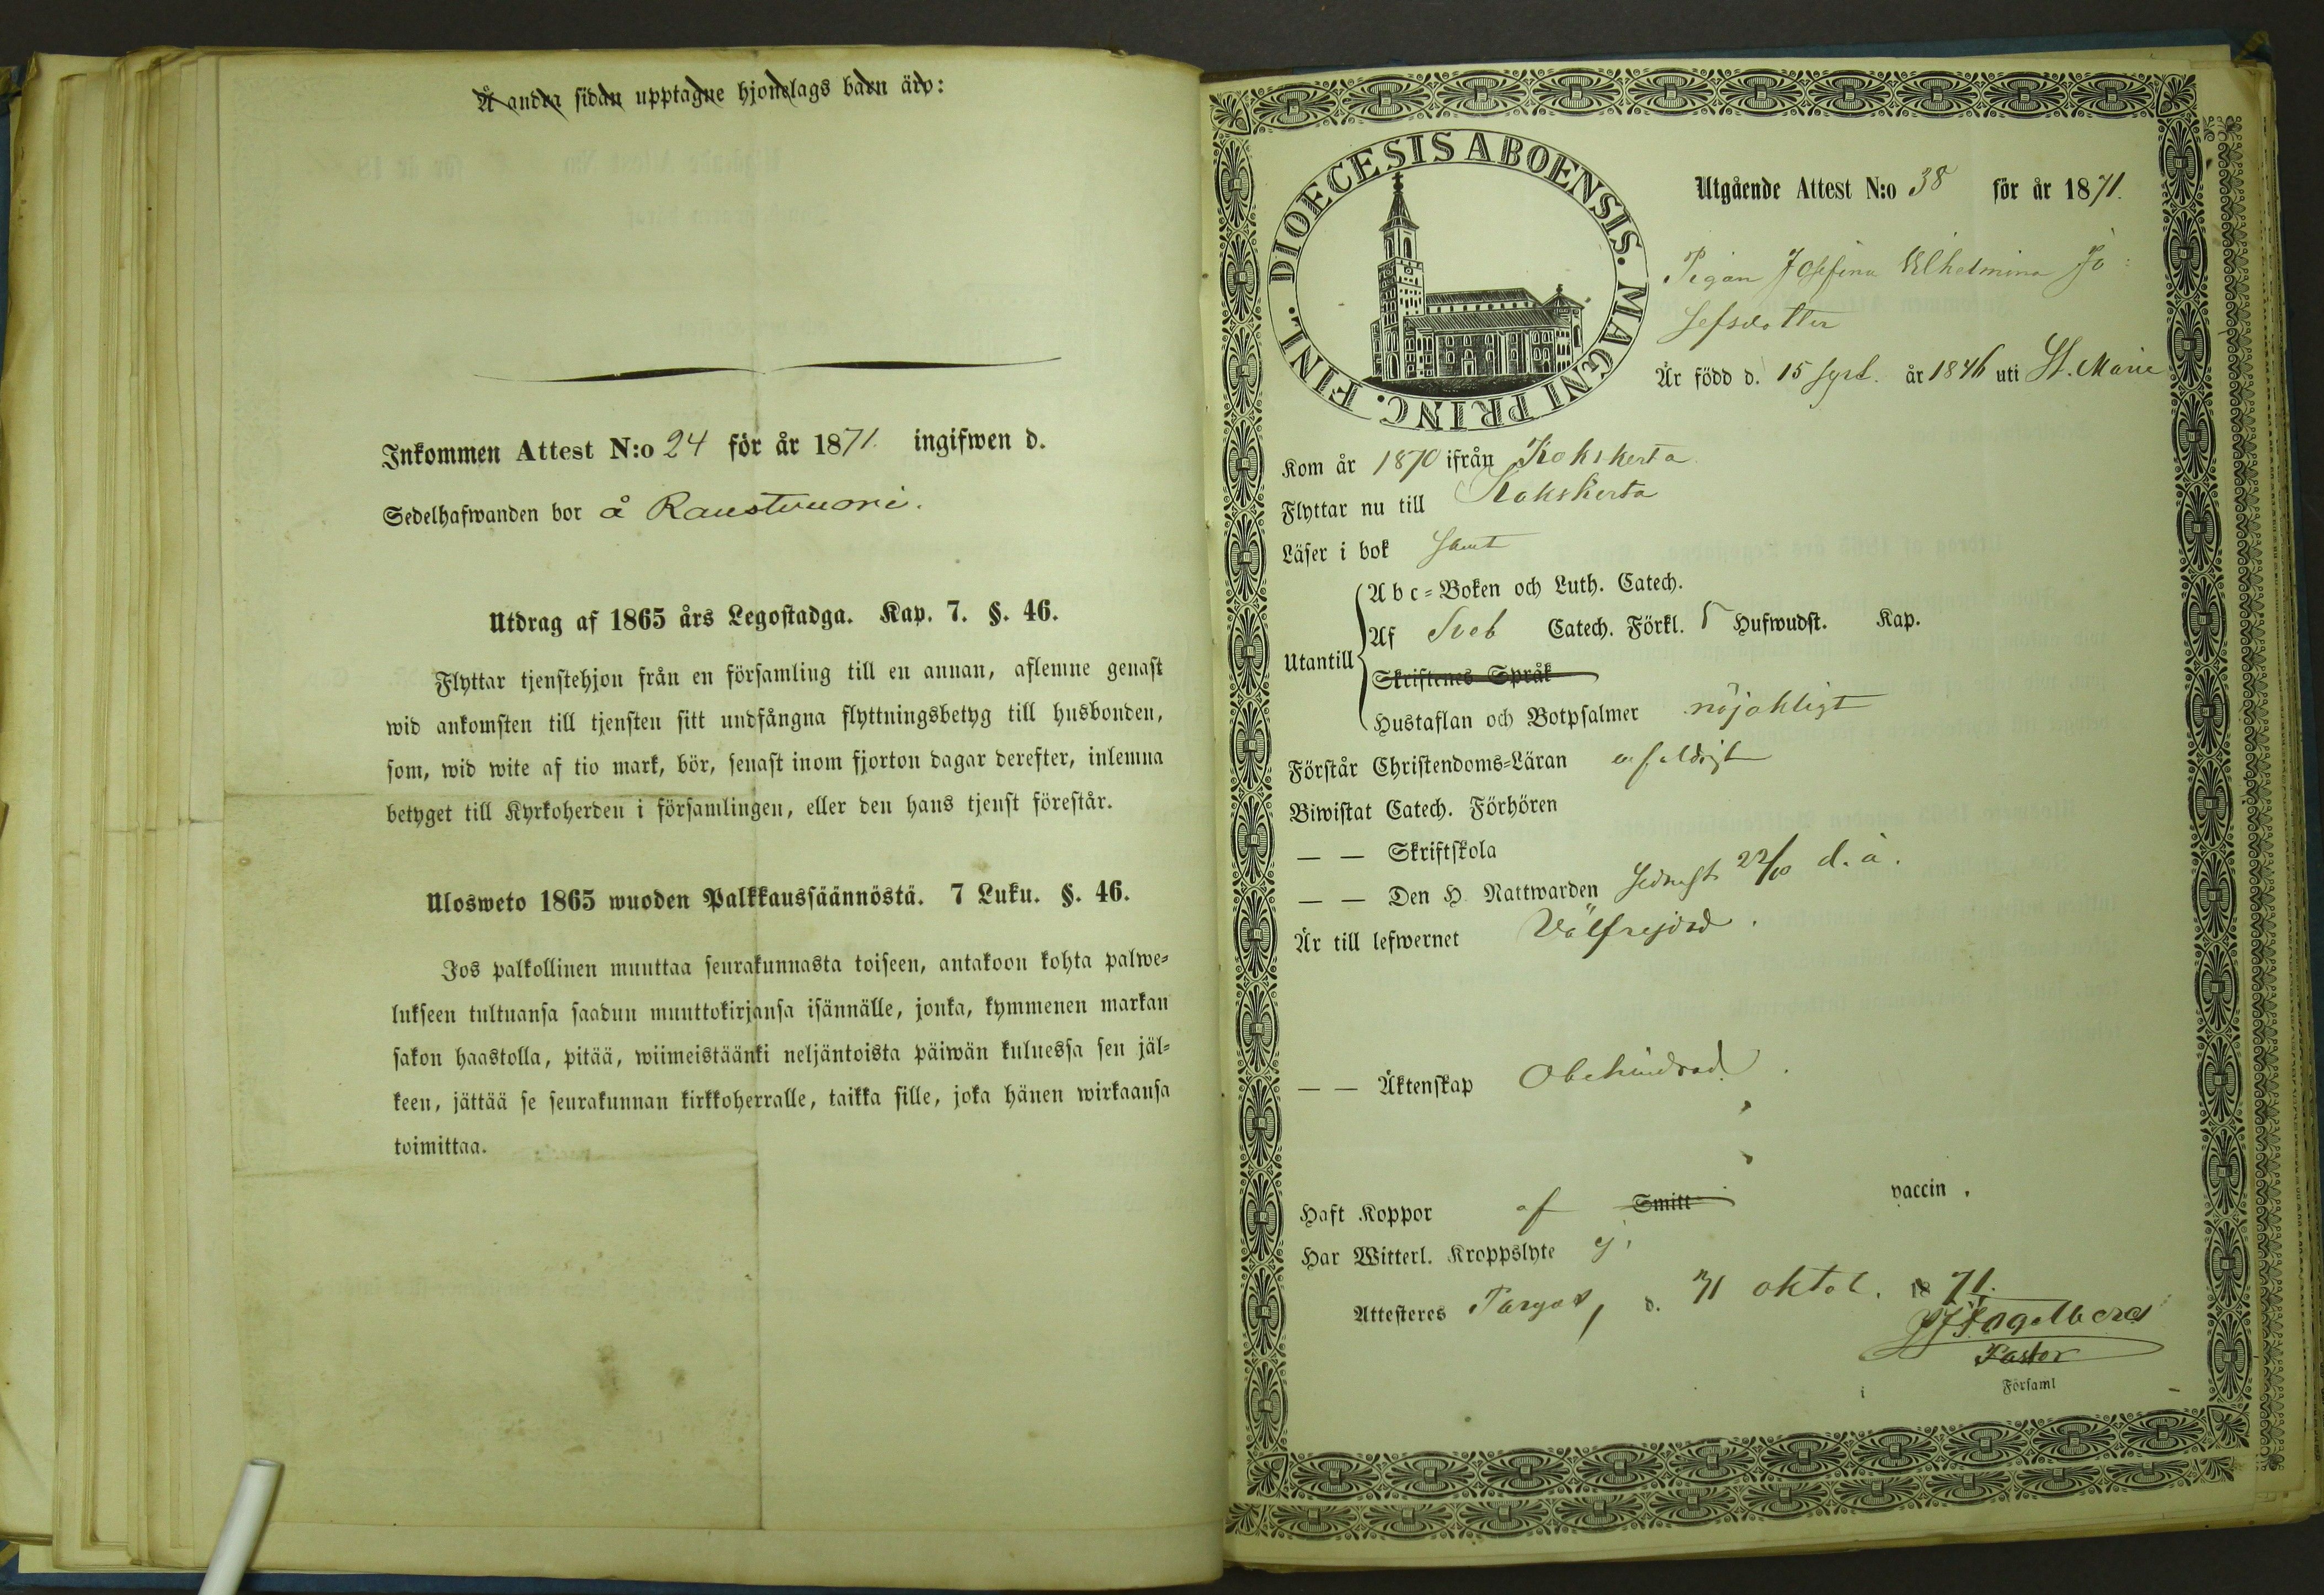 Å andra sidan upptagne hjonelags barn äro:
Inkommen Attest N:o 24 för år 1871. ingifwen d.
Sedelhafwanden bor å Raustvuori.
Utdrag af 1865 års Legostadga. Kap. 7. §. 46.
Flyttar tjenstehjon från en församling till en annan, aflemne genast
wid ankomsten till tjensten sitt undfångna flyttningsbetyg till husbonden,
som, wid wite af tio mark, bör, senast inom fjorton dagar derefter, inlemna
betyget till Kyrkoherden i församlingen, eller den hans tjenst förestår.
Ulosweto 1865 wuoden Palkkaussäännöstä. 7 Luku. §. 46.
Jos palkollinen muuttaa seurakunnasta toiseen, antakoon kohta palwe=
lukseen tultuansa saadun muuttokirjansa isännälle, jonka, kymmenen markan
sakon haastolla, pitää, wiimeistäänki neljäntoista päiwän kuluessa sen jäl=
keen, jättää se seurakunnan kirkkoherralle, taikka sille, joka hänen wirkaansa
toimittaa.
DIOECESIS ABOENSIS. MAGNI PRINC. FINL.
Utgående Attest N:o 38 för år 1871.
Pigan Josefina Vilhelmina Jo:
sefsdotter
Är född d. 15 Sept. år 1846 uti St. Marie
Kom år 1870 ifrån Kakskerta
Flyttar nu till Kakskerta
Läser i bok samt
Utantill
Abc=Boken och Luth. Catech.
Af Sveb Catech. Förkl. 5 Hufwudst. Kap.
Skriftenes Språk
Hustaflan och Botpsalmer nöjaktigt
Förstår Christendoms=Läran enfaldigt
Biwistat Catech. Förhören
— — Skriftskola
— — Den H. Nattwarden sednast 22/10 d. å.
Är till lefwernet Välfrejdad.
— — Äktenskap Obehindrad.
Haft Koppor af Smitt vaccin.
Har Witterl. Kroppslyte ej.
Attesteres Pargas, d. 31 oktob. 1871.
Fagelberg
Pastor
i Församl